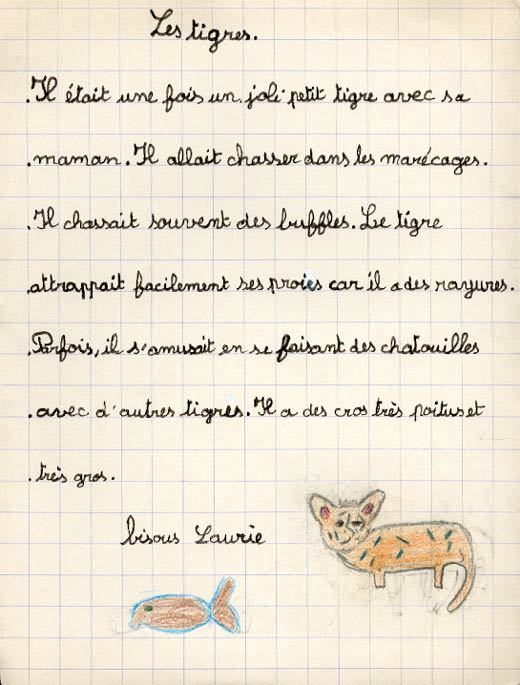 Les tigres.
Il était une fois un joli petit tigre avec sa
maman. Il allait chasser dans les marécages.
Il chassait souvent des buffles. Le tigre
attrappait facilement ses proies car il a des rayures.
Parfois, il s'amusait en se faisant des chatouilles
avec d'autres tigres. Il a des cros très poitus et
très gros.
bisous Laurie